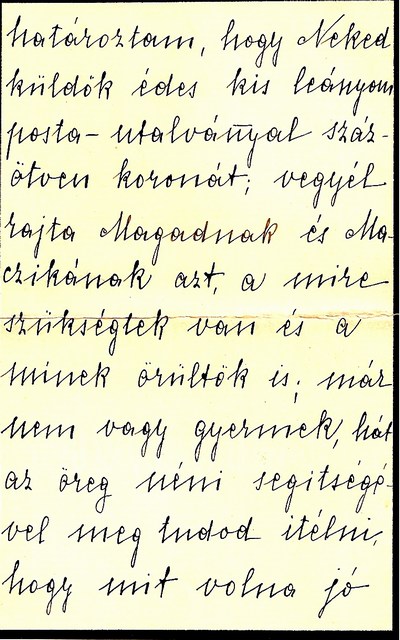 határoztam, hogy Neked
küldök édes kis leányom
posta-utalvánnyal száz-
ötven koronát; vegyél
rajta Magadnak és Ma-
czikának azt, a mire
szükségtek van és a
minek örültök is; már
nem vagy gyermek, hát
az öreg néni segitségé-
vel meg tudod itélni,
hogy mit volna jó